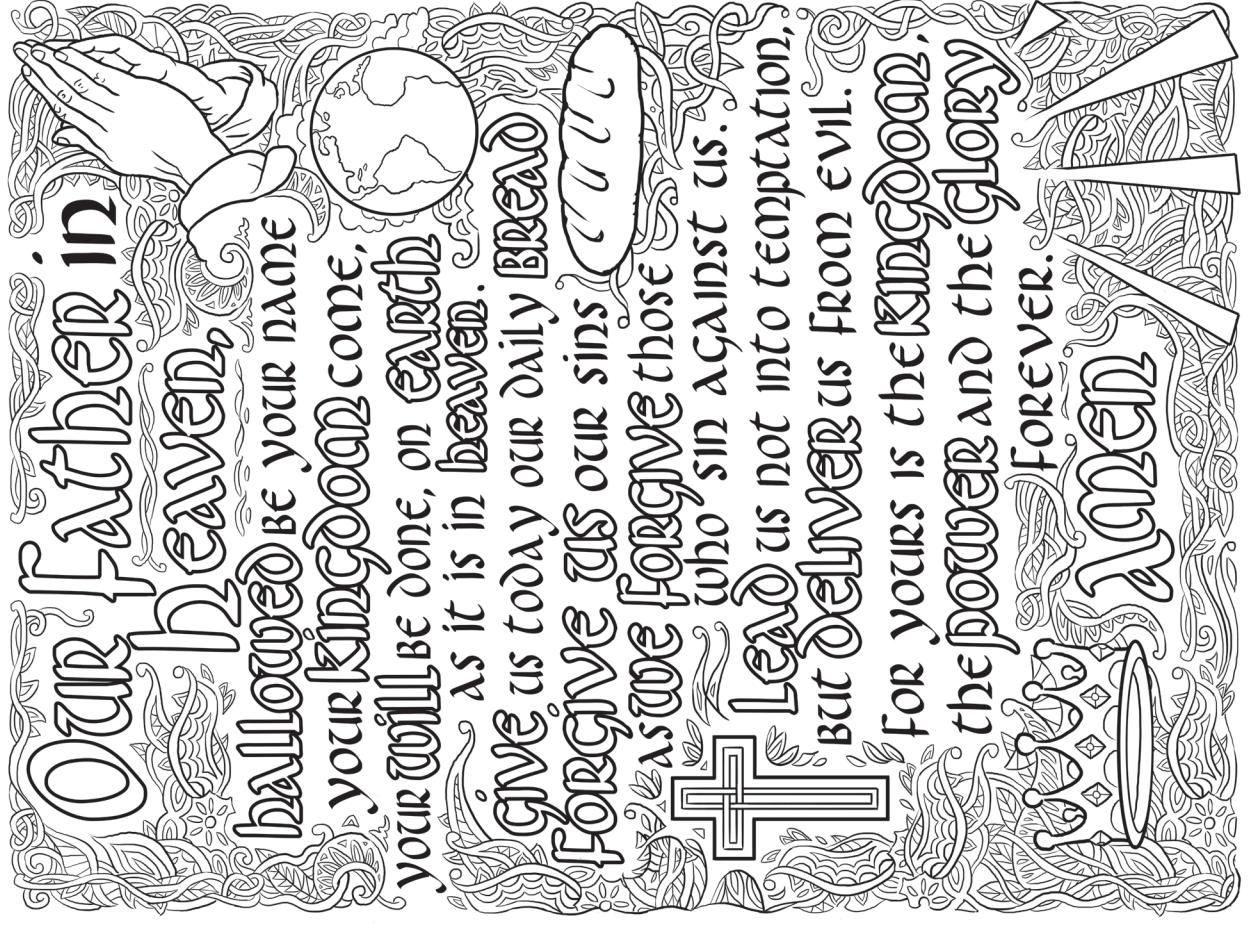 Our Father in
heaven,
hallowed be your name
your kingdom come,
your will be done, on earth
as it is in heaven.
Give us today our daily bread
Forgive us our sins
as we forgive those
who sin against us.
Lead us not into temptation,
but deliver us from evil.
For yours is the kingdom,
the power and the glory
forever.
Amen